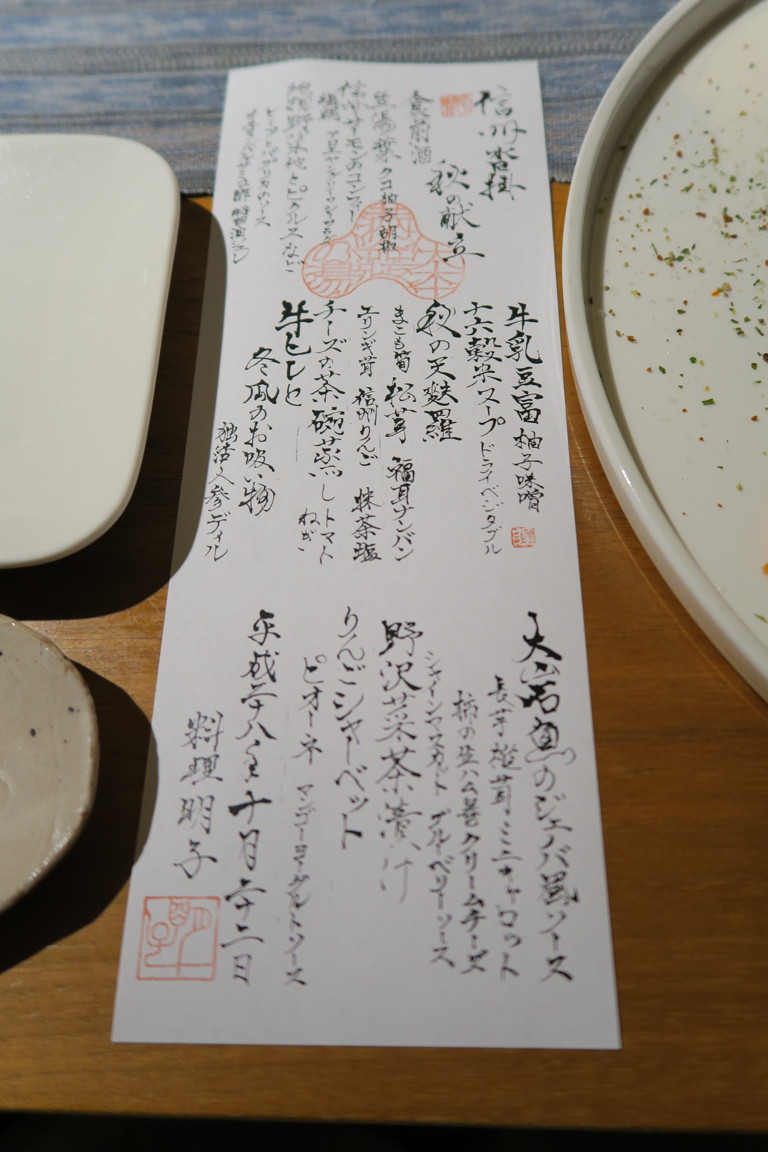 信州沓掛
秋の献立
食前酒
生湯葉 クコ柚子胡椒
信州サーモンのコンフィー
地鶏野菜巻とピクルスなど
牛乳豆富 柚子味噌
十六穀米スープ ドライベジタブル
秋の天麩羅
まこも筍 松茸 福耳ナンバン
エリンギ茸 信州りんご 抹茶塩
チーズの茶碗蒸し トマト
ねぎ
牛ヒレと
冬瓜のお吸い物
独活人参ディル
大岩魚のジェノバ風ソース
長芋 椎茸 ミニキャロット
柿の生ハム巻クリームチーズ
シャインマスカット ブルーベリーソース
野沢菜茶漬け
りんごシャーベット
ピオーネ マンゴーヨーグルトソース
平成二十八年十月二十二日
料理 明子